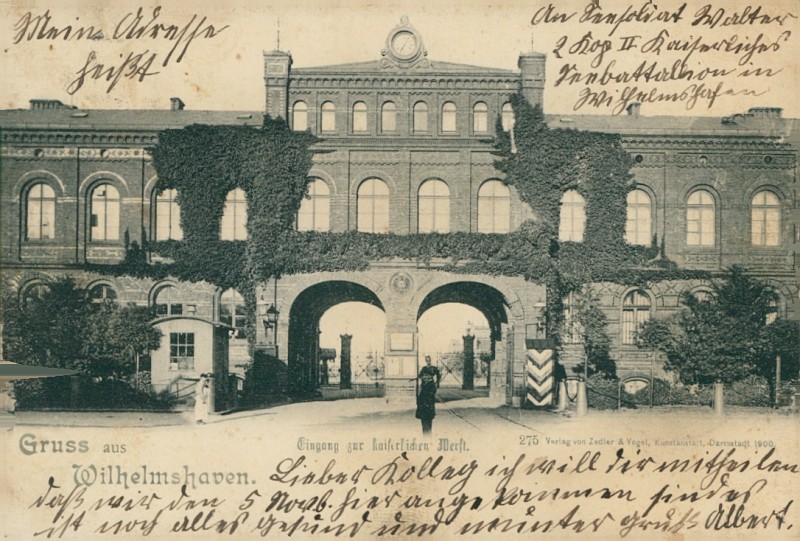 Mein Adresse
heißt
An Seesoldat Walter
2 Kop II Kaiserliches
Seebattallion in
Wilhelmshafen
Gruss aus
Wilhelmshaven.
Eingang zur kaiserlichen Werft.
275 Verlag von Zedler & Vogel, Kunstanstalt, Darmstadt 1900.
Lieber Kolleg ich will dir mitheilen
daß wir den 5 Novb. hier angekommen sind es
ist noch alles gesund und munter gruß Albert.